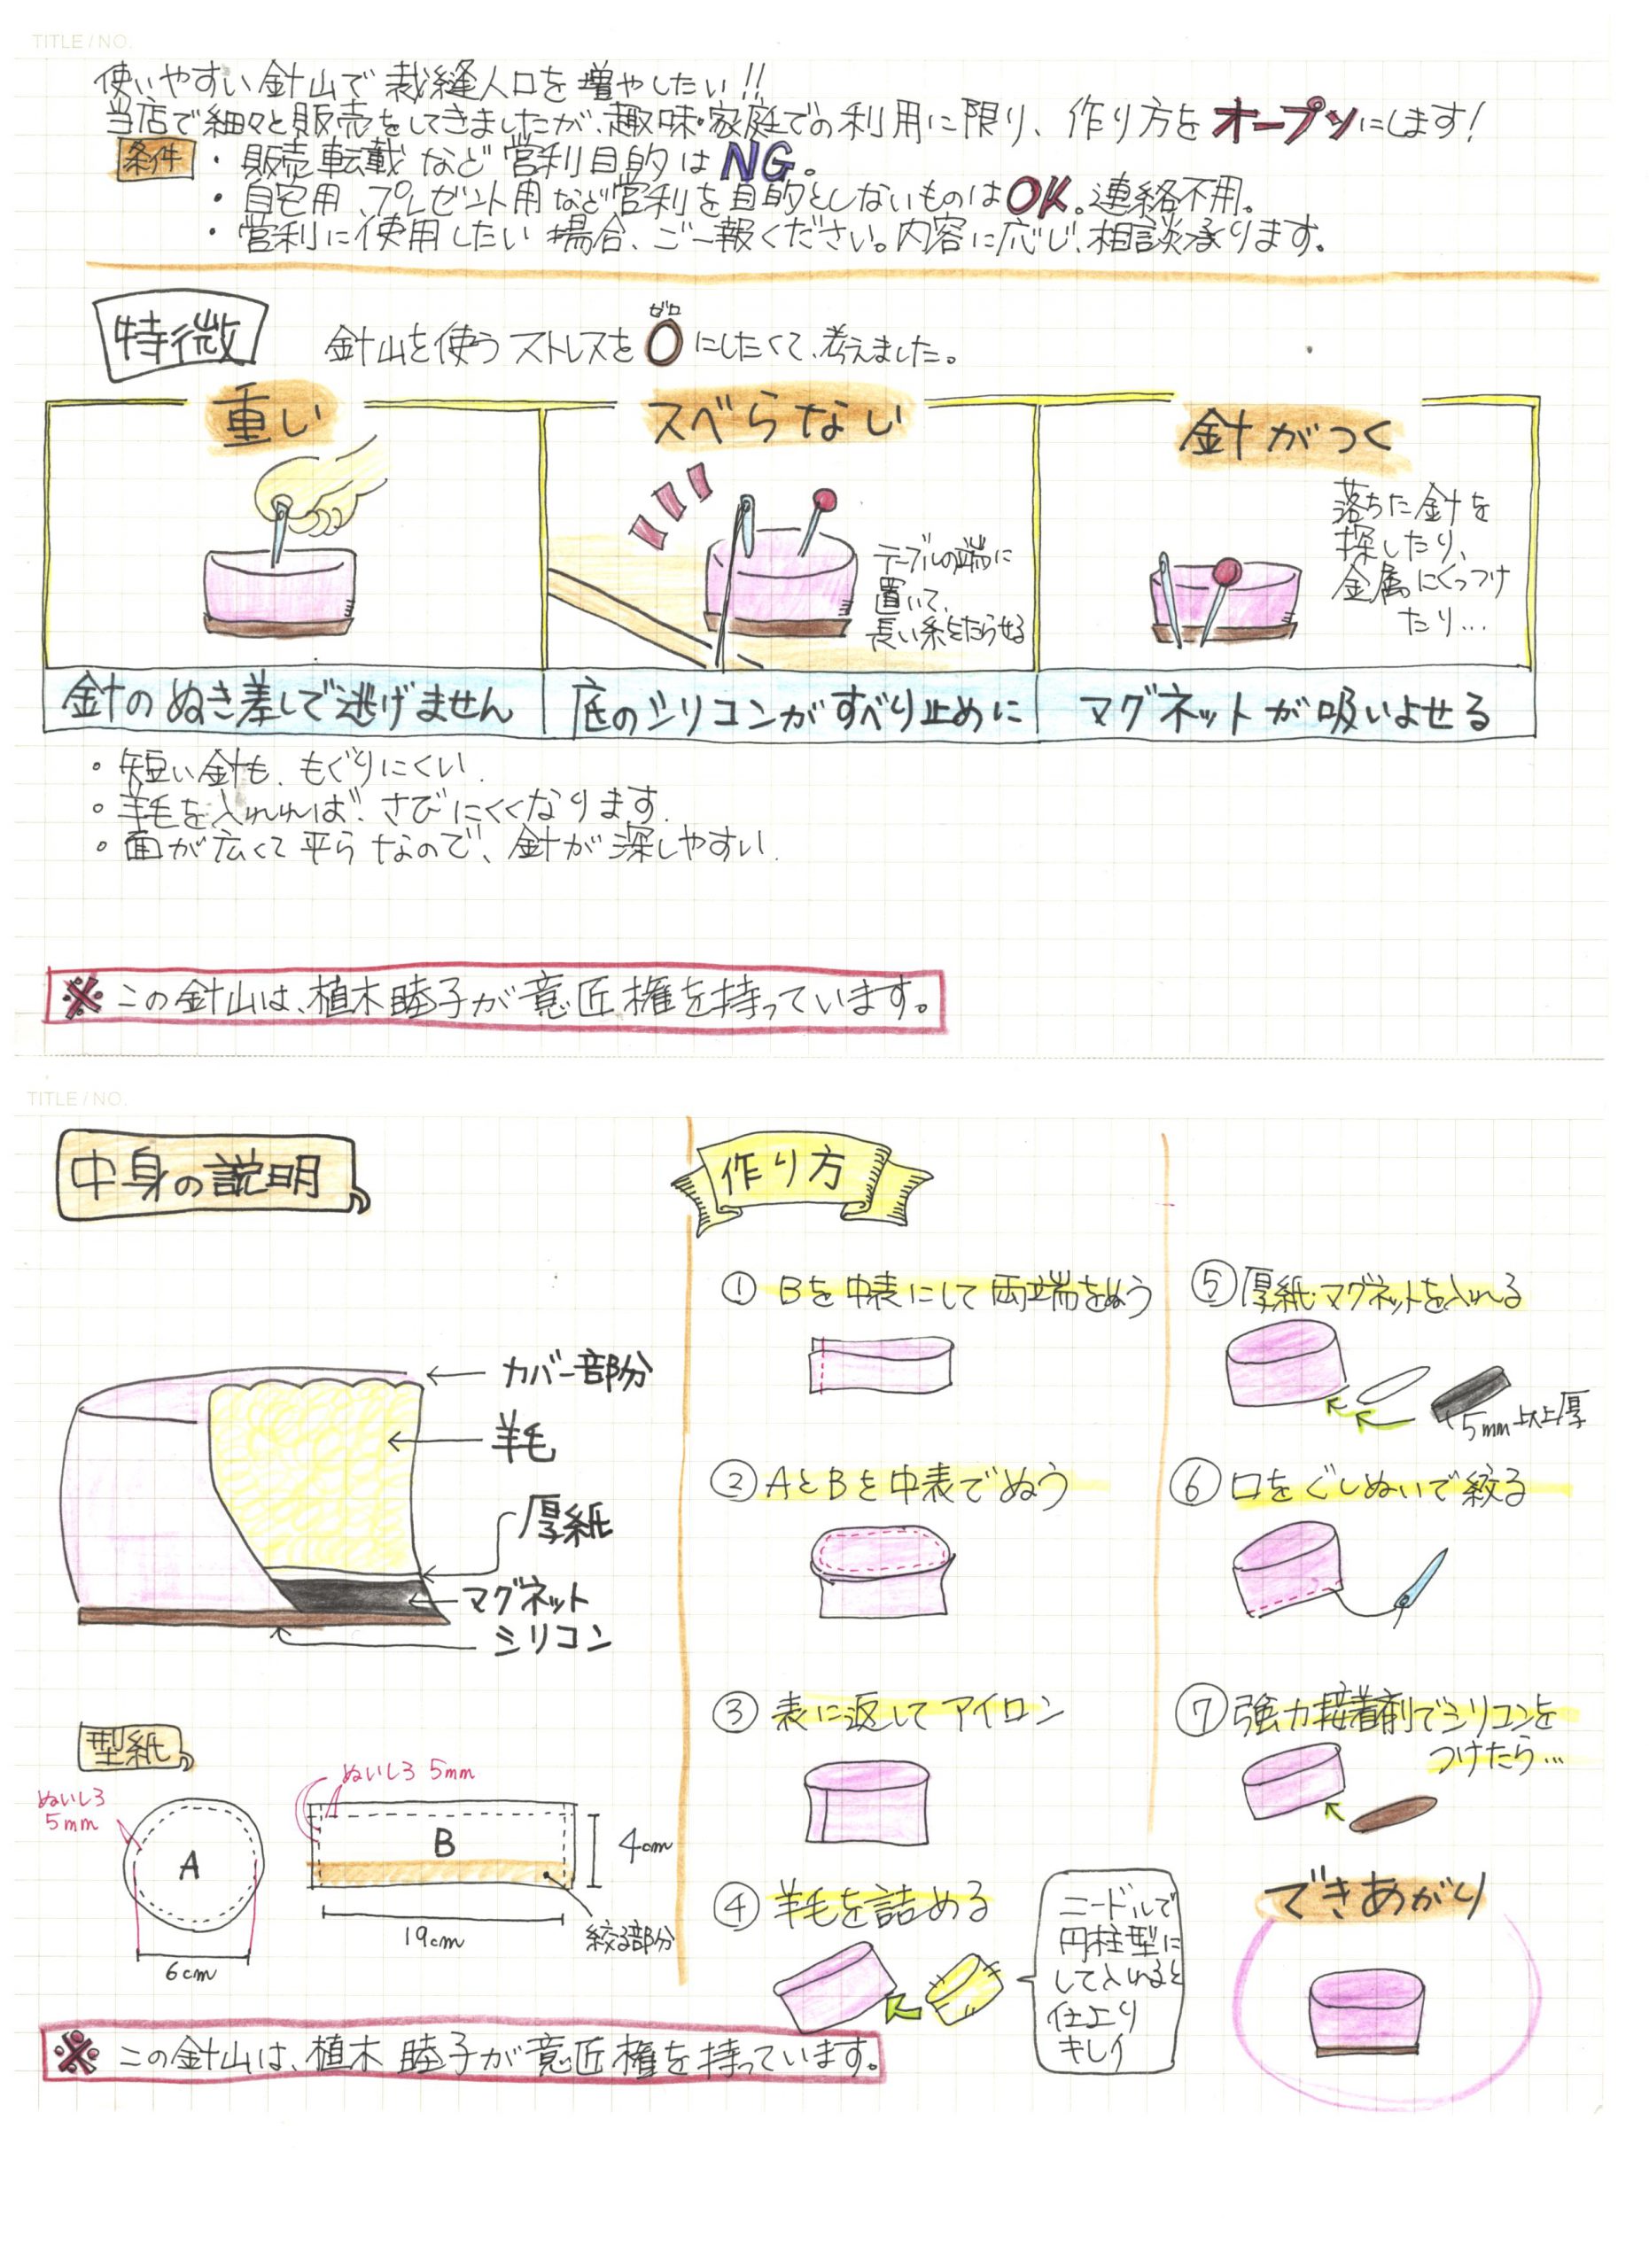 TITLE / NO.
使いやすい針山で裁縫人口を増やしたい!!
当店で細々と販売をしてきましたが、趣味・家庭での利用に限り、作り方をオープンにします!
条件
・販売転載など営利目的はNG。
・自宅用、プレゼント用など営利を目的としないものはOK。連絡不用。
・営利に使用したい場合、ご一報ください。内容に応じ、相談承ります。
特徴
ゼロ
針山を使うストレスを0にしたくて、考えました。
重い
スベらない
針がつく
テーブルの端に
置いて、
長い糸をたらせる
落ちた針を
探したり、
金属にくっつけ
たり…
針のぬき差しで逃げません
底のシリコンがすべり止めに
マグネットが吸いよせる
・短い針も、もぐりにくい.
・羊毛を入れれば、さびにくくなります.
・面が広くて平らなので、針が探しやすい.
※この針山は、植木睦子が意匠権を持っています。
TITLE / NO.
中身の説明
カバー部分
羊毛
厚紙
マグネット
シリコン
型紙
ぬいしろ
5mm
A
6cm
ぬいしろ 5mm
B
4cm
19cm
絞る部分
作り方
① Bを中表にして両端をぬう
② AとBを中表でぬう
③ 表に返してアイロン
④ 羊毛を詰める
ニードルで
円柱型に
して入れると
仕上り
キレイ
⑤ 厚紙・マグネットを入れる
5mm以上厚
⑥ 口をぐしぬいで絞る
⑦ 強力接着剤でシリコンを
つけたら…
できあがり
※この針山は、植木睦子が意匠権を持っています。